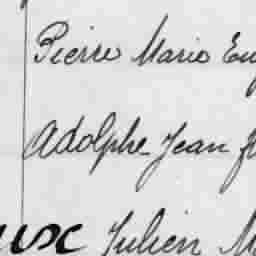 Pierre Mario Eu
Adolphe Jean
Julien M